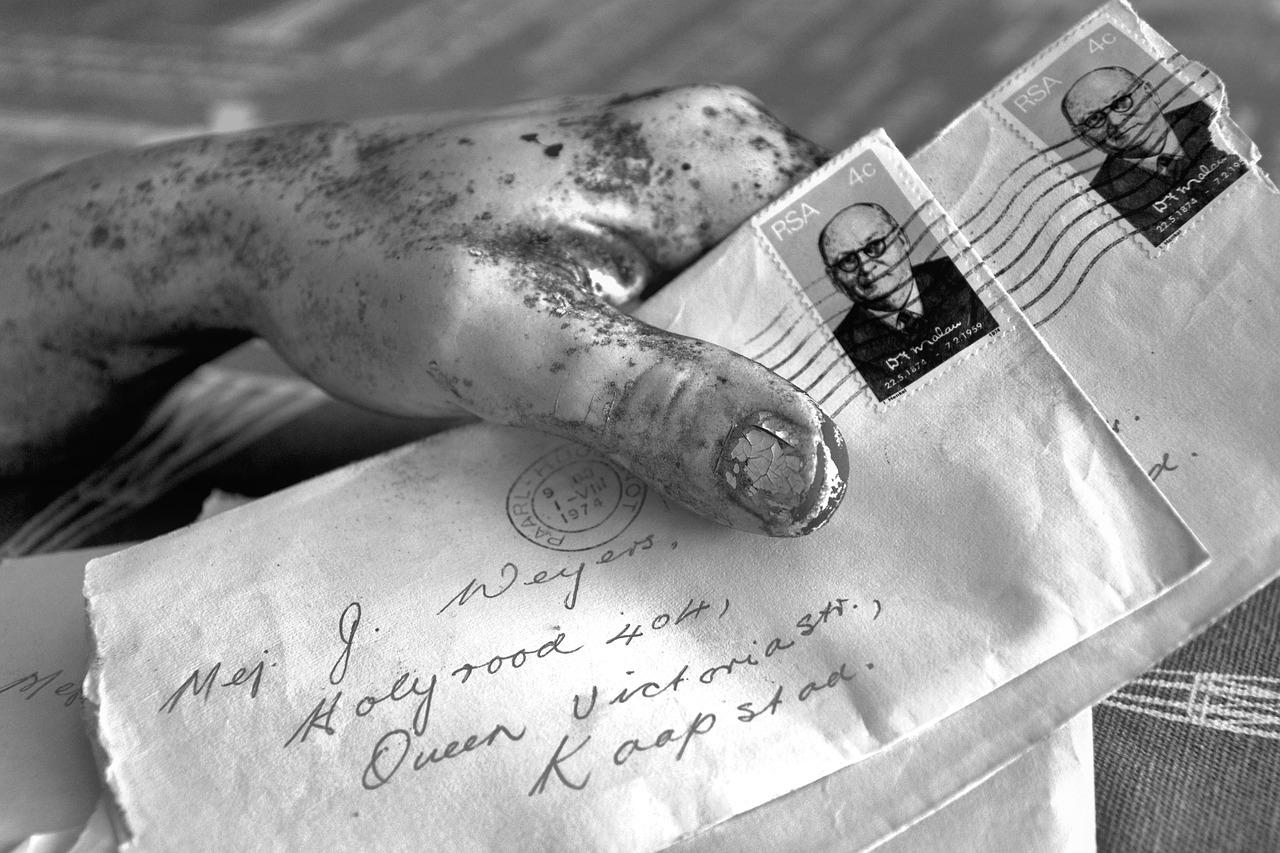 RSA 4c
DF Malan
22.5.1874 - 7.2.1959
RSA 4c
DF Malan
22.5.1874 - 7.2.19
PAARL-HUG OT
9
1-VIII
1974
Mej. J. Weyers,
Holyrood 404,
Queen Victoriastr.,
Kaapstad.
d.
Mej